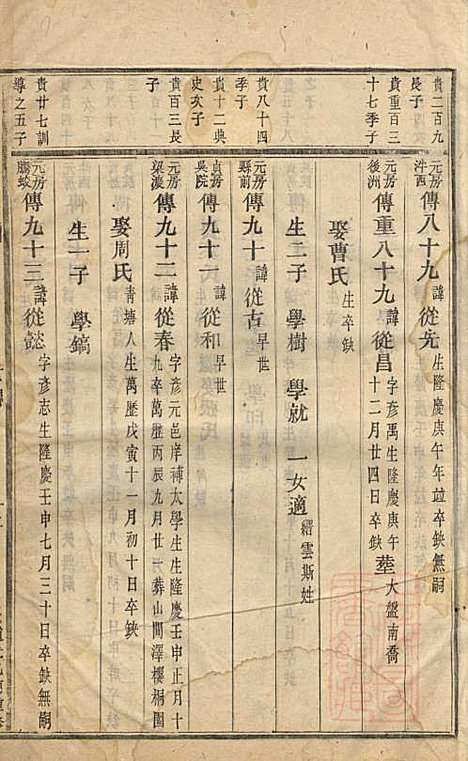 貴二百九
長子
貴重百三
十七季子
貴八十四
季子
貴十二典
史次子
貴百三長
子
貴廿七訓
導之五子
元房
泮西
傳八十九 諱從先 生隆慶庚午年竝卒缺無嗣
元房
後洲
傳重八十九 諱從昌 字彥禹生隆慶庚午
十二月廿四日卒缺 葬大盤南喬
娶曹氏 生卒缺
生二子 學樹 學就 一女適 縉雲斯姓
元房
縣前
傳九十 諱從古 早世
貞房
吳院
傳九十一 諱從和 早世
元房
梁渡
傳九十二 諱從春 字彥元邑庠補太學生生隆慶壬申正月十
九卒萬曆丙辰九月廿一葬山間澤樓桐園
娶周氏 青塘人生萬曆戊寅十一月初十日卒缺
生一子 學鎬
元房
傳九十三 諱從懿 字彥志生隆慶壬申七月三十日卒缺無嗣